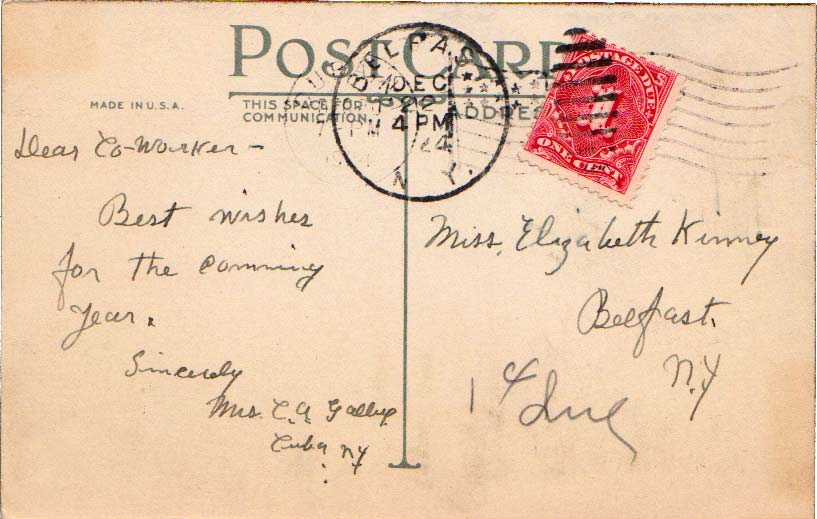 POST CARD
MADE IN U.S.A.
THIS SPACE FOR
COMMUNICATION
ADDRESS
BELFAST
DEC
22
4 PM
N Y.
POSTAGE DUE
1
ONE CENT
Dear Co-Worker –
Best wishes
for the comming
Year.
Sincerely
Mrs. C. A. Gallup
Cuba NY
Miss, Elizabeth Kinney
Belfast.
N.Y
1¢ due